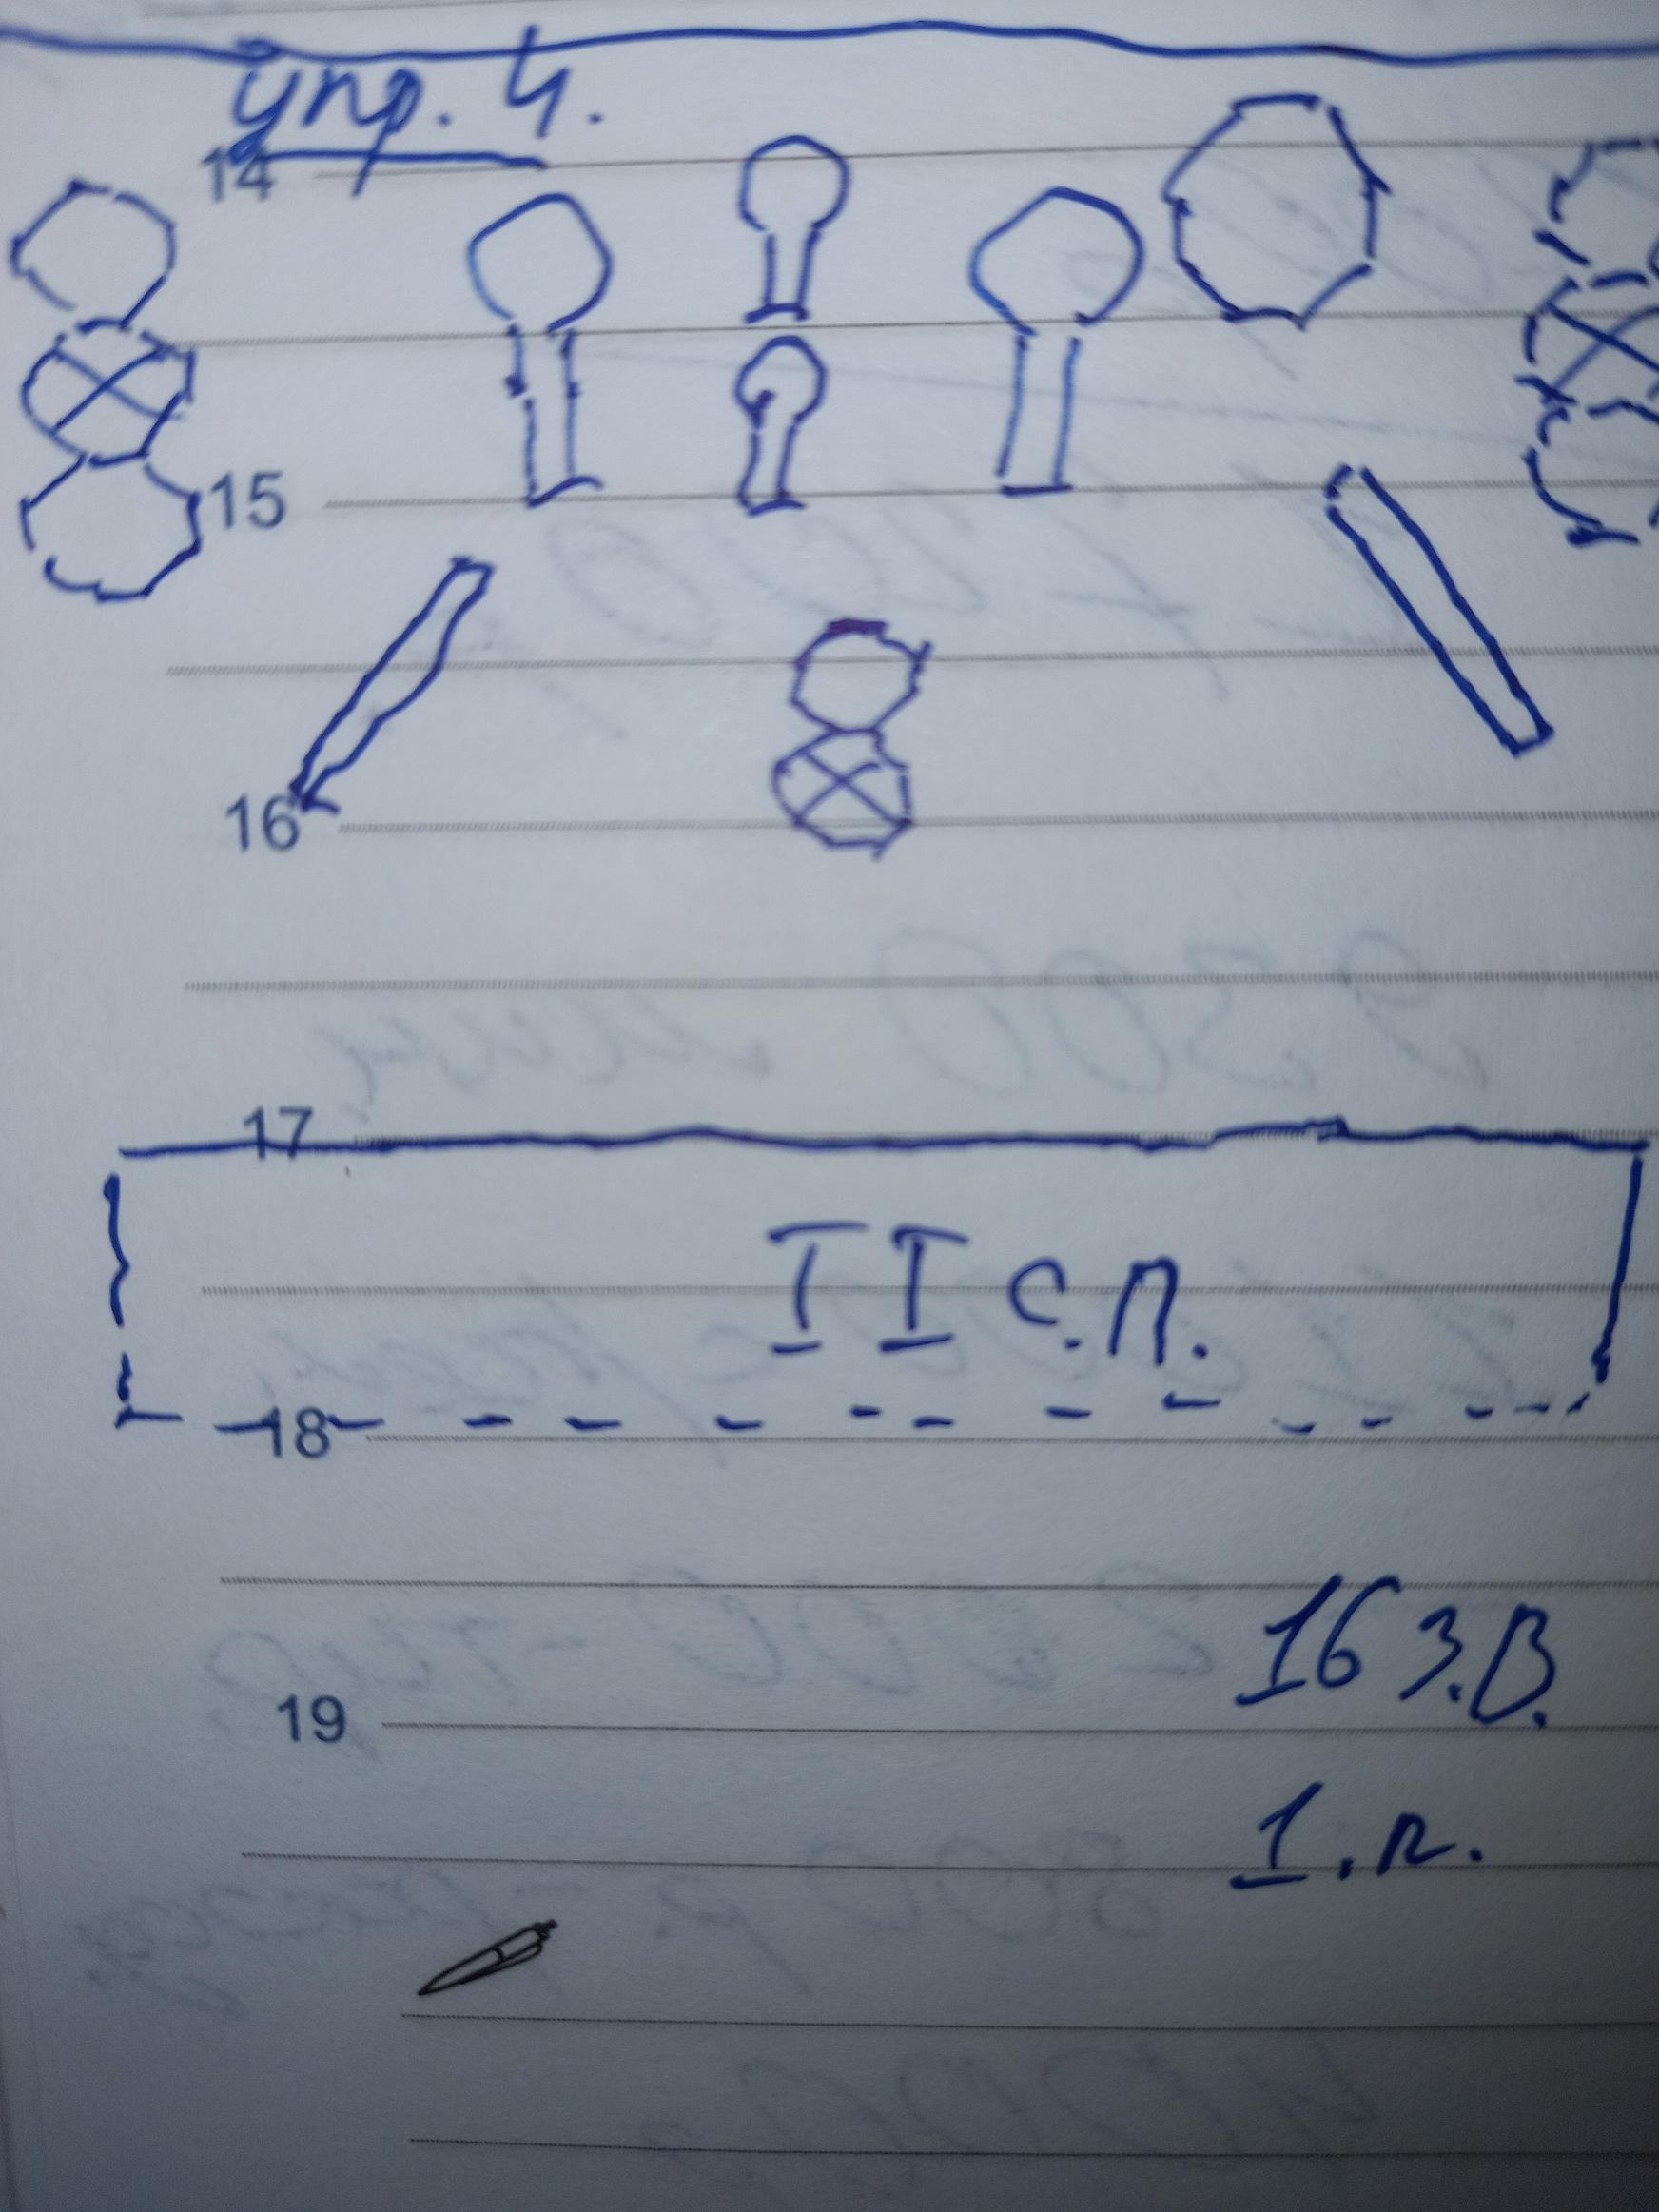 упр. 4.
14
15
16
17
II с.п.
18
16 з.в.
19
1.п.